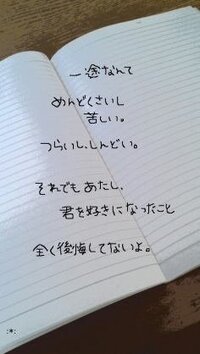 一途なんて
めんどくさいし
苦しい。
つらいし、しんどい。
それでもあたし、
君を好きになったこと
全く後悔してないよ。
:*: